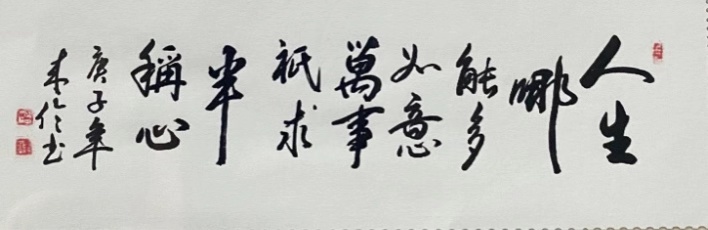 人生
哪
能多
如意
萬事
祇求
半
稱心
庚子年
书